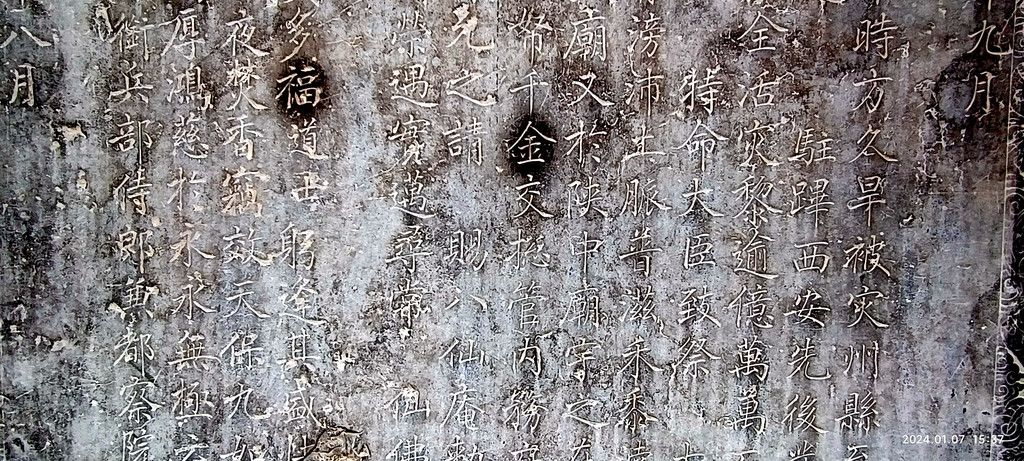 九月
時方久旱被灾州縣
駐蹕西安先後
全活灾黎逾億萬萬
特命大臣致祭
滂沛土脈普滋禾黍
廟又於陝中廟宇之
帑千金交總管內務府
允之請賜八仙庵勅
榮遇實邁尋常仙佛
多福道士躬逢其盛
夜焚香竊效天保九如
厚鴻慈於永永無極
銜兵部侍郎兼都察院
八月
2024.01.07 15:37